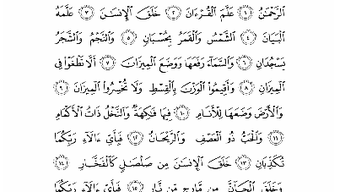 ٱلرَّحْمَـٰنُ ١ عَلَّمَ ٱلْقُرْءَانَ ٢ خَلَقَ ٱلْإِنسَـٰنَ ٣ عَلَّمَهُ
ٱلْبَيَانَ ٤ ٱلشَّمْسُ وَٱلْقَمَرُ بِحُسْبَانٍ ٥ وَٱلنَّجْمُ وَٱلشَّجَرُ
يَسْجُدَانِ ٦ وَٱلسَّمَآءَ رَفَعَهَا وَوَضَعَ ٱلْمِيزَانَ ٧ أَلَّا تَطْغَوْا۟ فِى
ٱلْمِيزَانِ ٨ وَأَقِيمُوا۟ ٱلْوَزْنَ بِٱلْقِسْطِ وَلَا تُخْسِرُوا۟ ٱلْمِيزَانَ ٩
وَٱلْأَرْضَ وَضَعَهَا لِلْأَنَامِ ١٠ فِيهَا فَـٰكِهَةٌ وَٱلنَّخْلُ ذَاتُ ٱلْأَكْمَامِ
١١ وَٱلْحَبُّ ذُو ٱلْعَصْفِ وَٱلرَّيْحَانُ ١٢ فَبِأَىِّ ءَالَآءِ رَبِّكُمَا
تُكَذِّبَانِ ١٣ خَلَقَ ٱلْإِنسَـٰنَ مِن صَلْصَـٰلٍ كَٱلْفَخَّارِ ١٤
وَخَلَقَ ٱلْجَآنَّ مِن مَّارِجٍ مِّن نَّارٍ ١٥ فَبِأَىِّ ءَالَآءِ رَبِّكُمَا